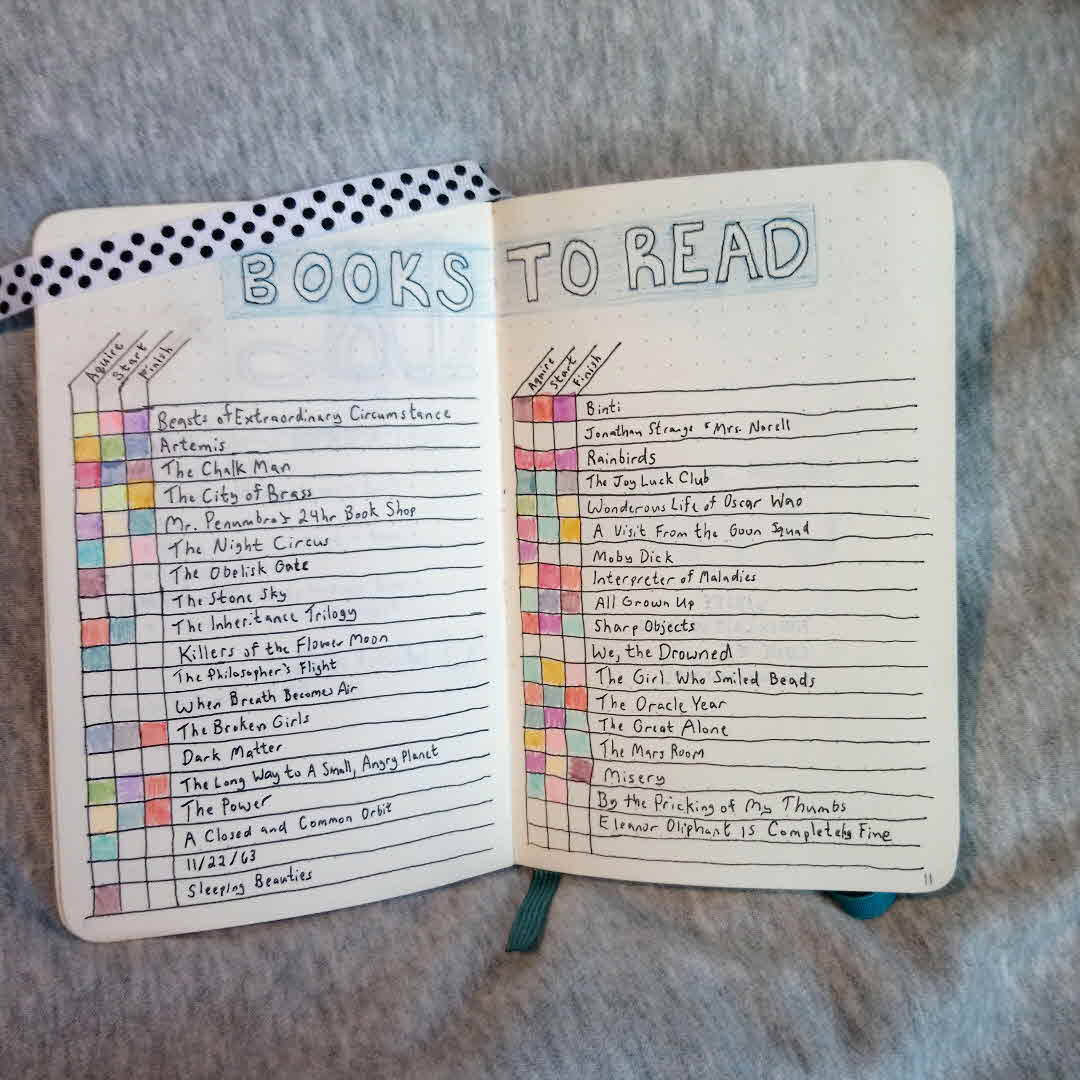 BOOKS TO READ
Aquire
Start
Finish
Beasts of Extraordinary Circumstance
Artemis
The Chalk Man
The City of Brass
Mr. Penumbra's 24hr Book Shop
The Night Circus
The Obelisk Gate
The Stone Sky
The Inheritance Trilogy
Killers of the Flower Moon
The Philosopher's Flight
When Breath Becomes Air
The Broken Girls
Dark Matter
The Long Way to A Small, Angry Planet
The Power
A Closed and Common Orbit
11/22/63
Sleeping Beauties
Aquire
Start
Finish
Binti
Jonathan Strange & Mrs. Norell
Rainbirds
The Joy Luck Club
Wonderous Life of Oscar Wao
A Visit From the Goon Squad
Moby Dick
Interpreter of Maladies
All Grown Up
Sharp Objects
We, the Drowned
The Girl Who Smiled Beads
The Oracle Year
The Great Alone
The Mars Room
Misery
By the Pricking of My Thumbs
Eleanor Oliphant Is Completely Fine
11